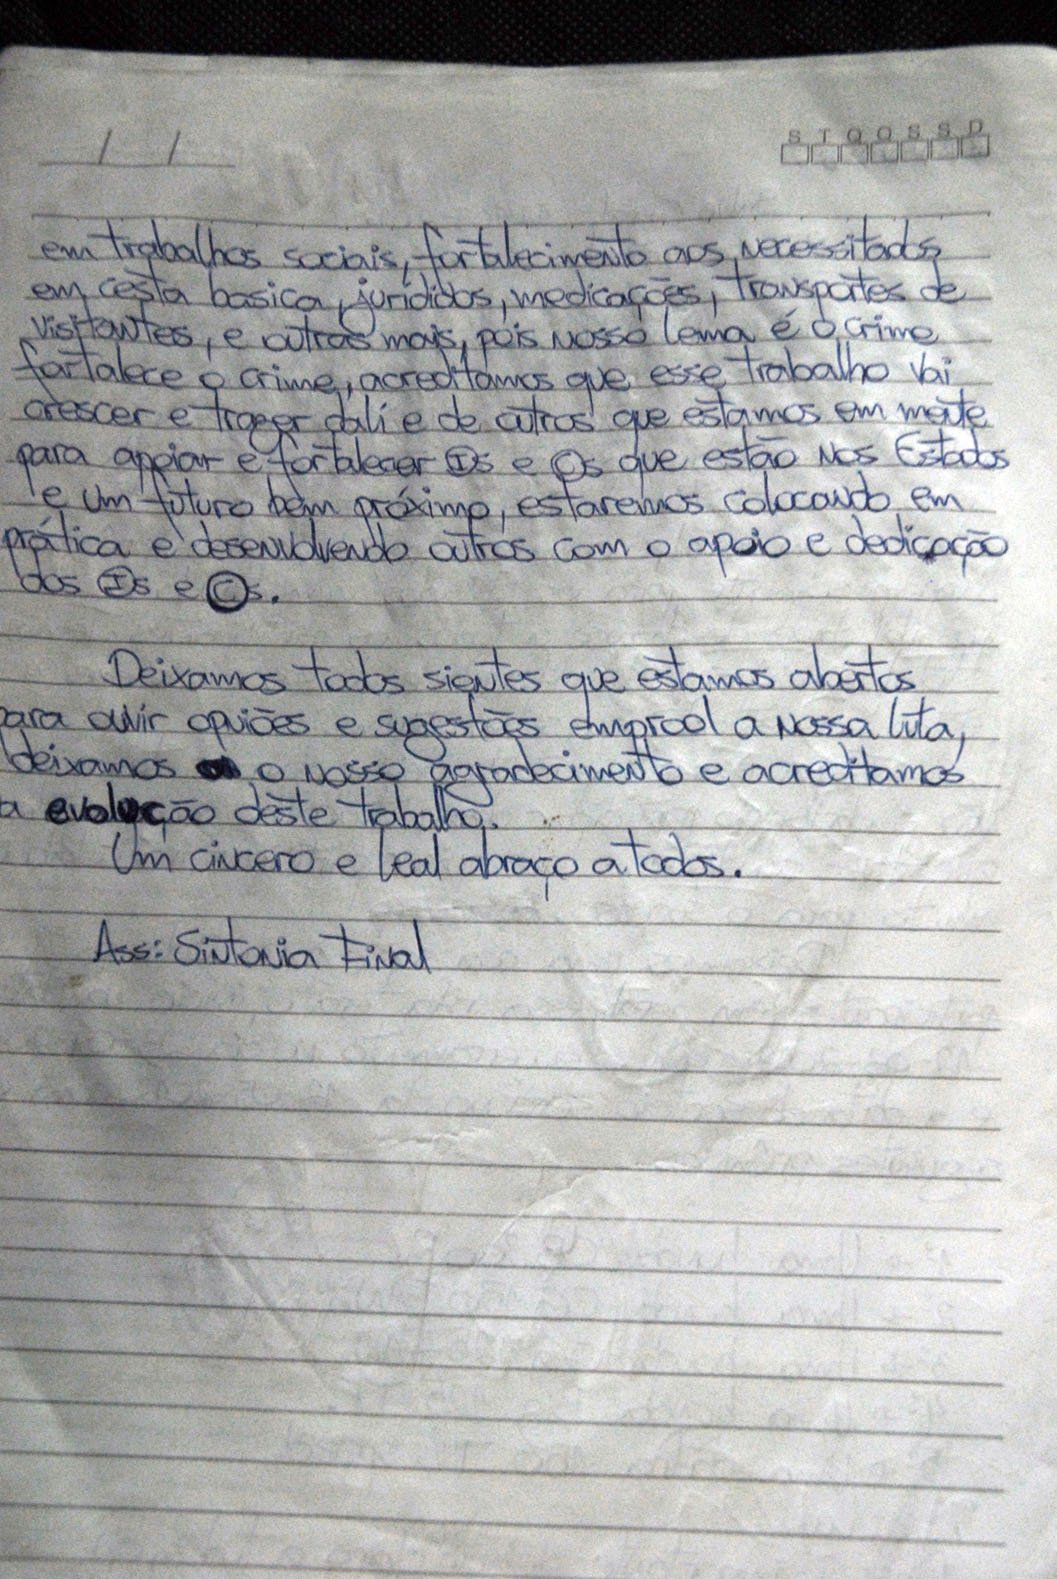 S T Q Q S S D
/ /
em trabalhos sociais, fortalecimento aos necessitados
em cesta basica, jurídidos, medicações, transportes de
visitantes, e outras mais, pois nosso lema é o crime
fortalece o crime, acreditamos que esse trabalho vai
crescer e trazer dali e de outros que estamos em mente
para apoiar e fortalecer Ⓘs e Ⓒs que estão nos Estados
e um futuro bem próximo, estaremos colocando em
prática e desenvolvendo outros com o apoio e dedicação
dos Ⓘs e Ⓒs.
Deixamos todos sientes que estamos abertos
para ouvir opuiões e sugestões emprool a nossa luta,
deixamos o nosso agradecimento e acreditamos
a evolução deste trabalho.
Um cincero e leal abraço a todos.
Ass: Sintonia Final